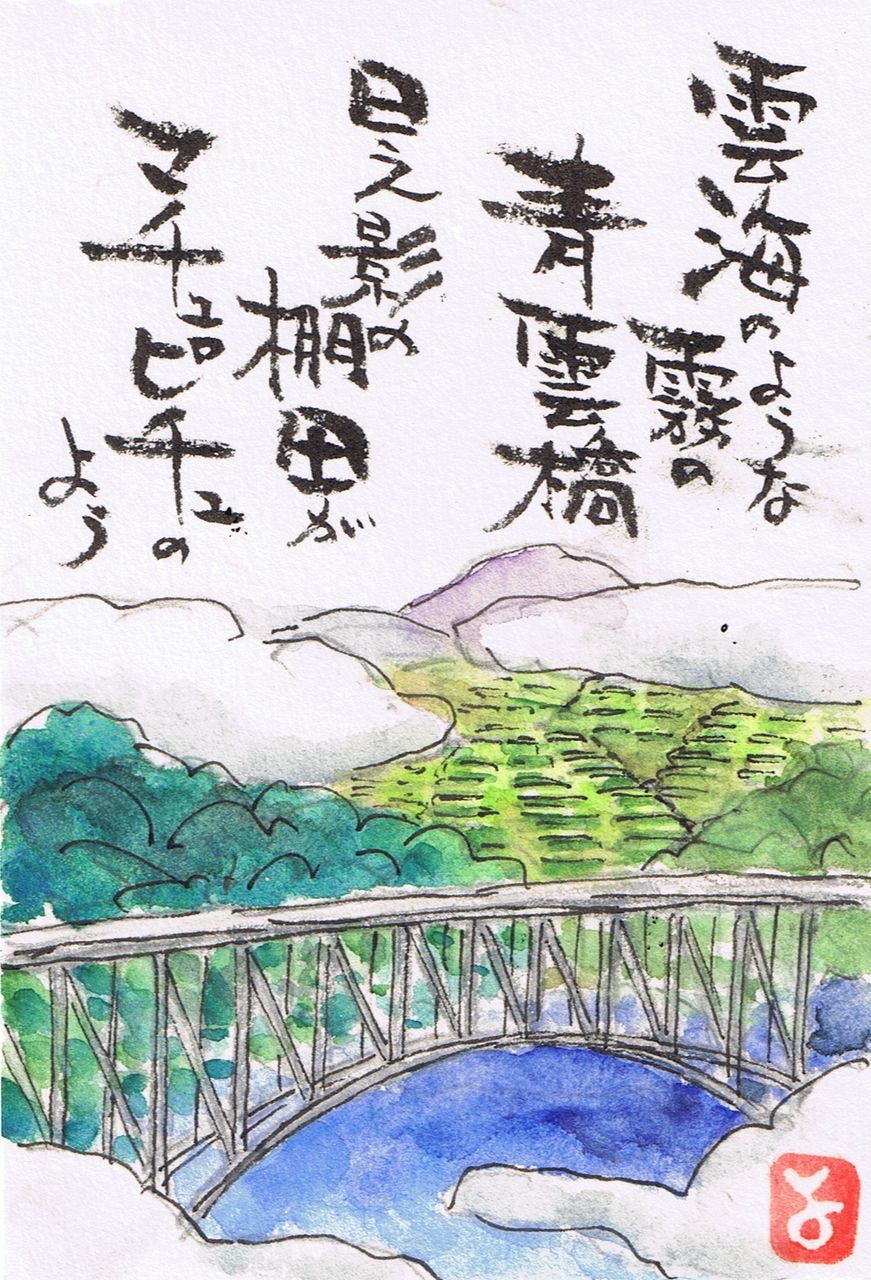 雲海のような
霧の
青雲橋
日之影の
棚田が
マチュピチュの
よう
と